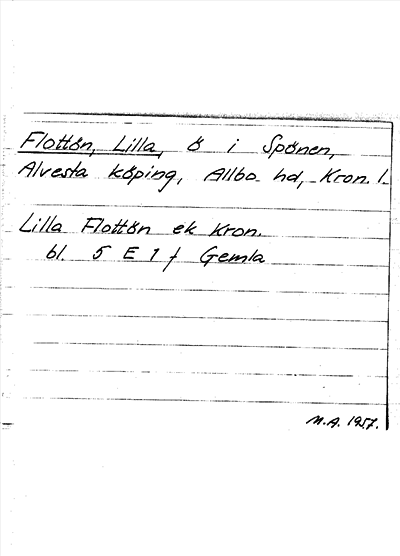 Flottön, Lilla, ö i Spånen,
Alvesta köping, Allbo hd, Kron. l.
Lilla Flottön ek Kron.
bl. 5 E 1 f Gemla
M.A. 1957.